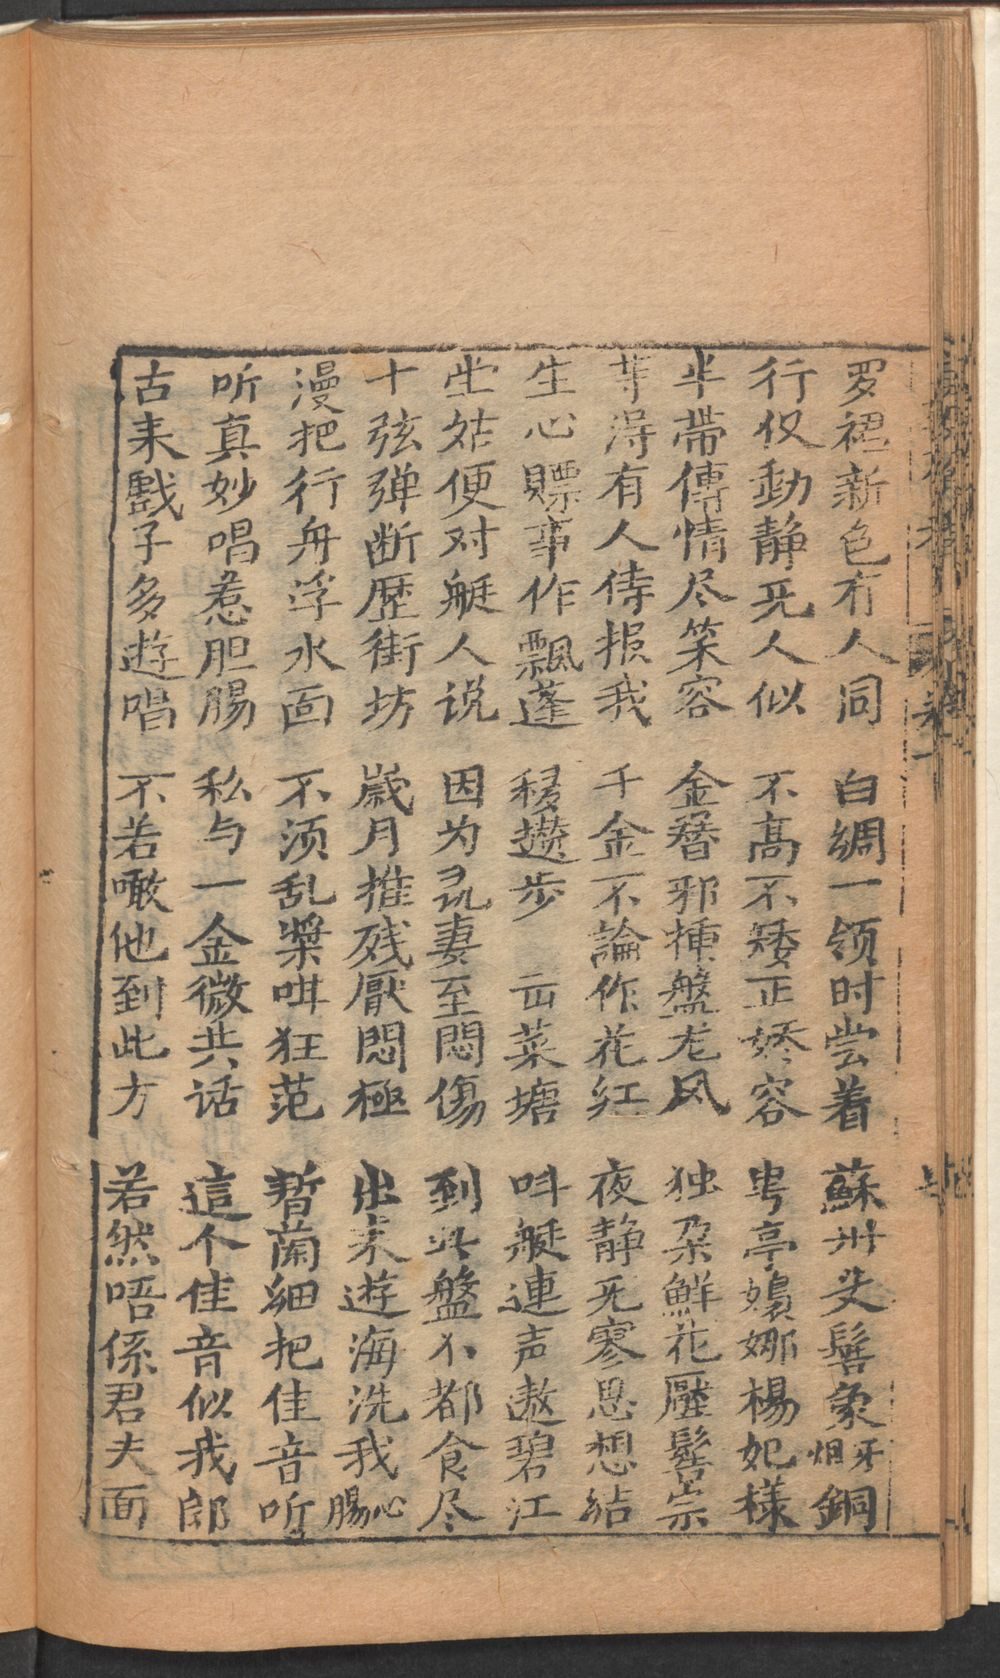 罗裙新色有人同　白綢一领时尝着　蘇州头髻象牙烟銅
行仅動静死人似　不高不矮正娇容　亭嫋娜楊妃樣
半帶傳情尽笑容　金簪邪揷盤龙风　独朵鮮花壓髻宗
等淂有人侍报我　千金不論作花红　夜静死寥思想結
生心嫖事作飄蓬　移攅步　云菜塘　呌艇連声遨碧江
坐姑便对艇人说　因为寻妻至悶傷　到此盤小都食尽
十弦弹断歷街坊　歲月推残厭悶極　出来遊海洗我心腸
漫把行舟浮水面　不须乱槳咁狂范　暂蘭細把佳音听
听真妙唱惹胆腸　私与一金微共话　這个佳音似我郎
古来戲子多遊唱　不若噉他到此方　若然唔係君夫面